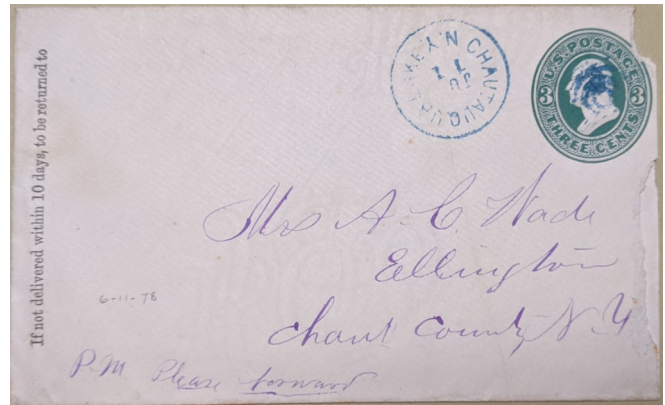 If not delivered within 10 days, to be returned to
CHAUTAUQUA LAKE N.Y.
U.S. POSTAGE
3 3
THREE CENTS
Mrs A. C. Wade
Ellington
Chaut County N.Y
6-11-78
P.M. Please forward